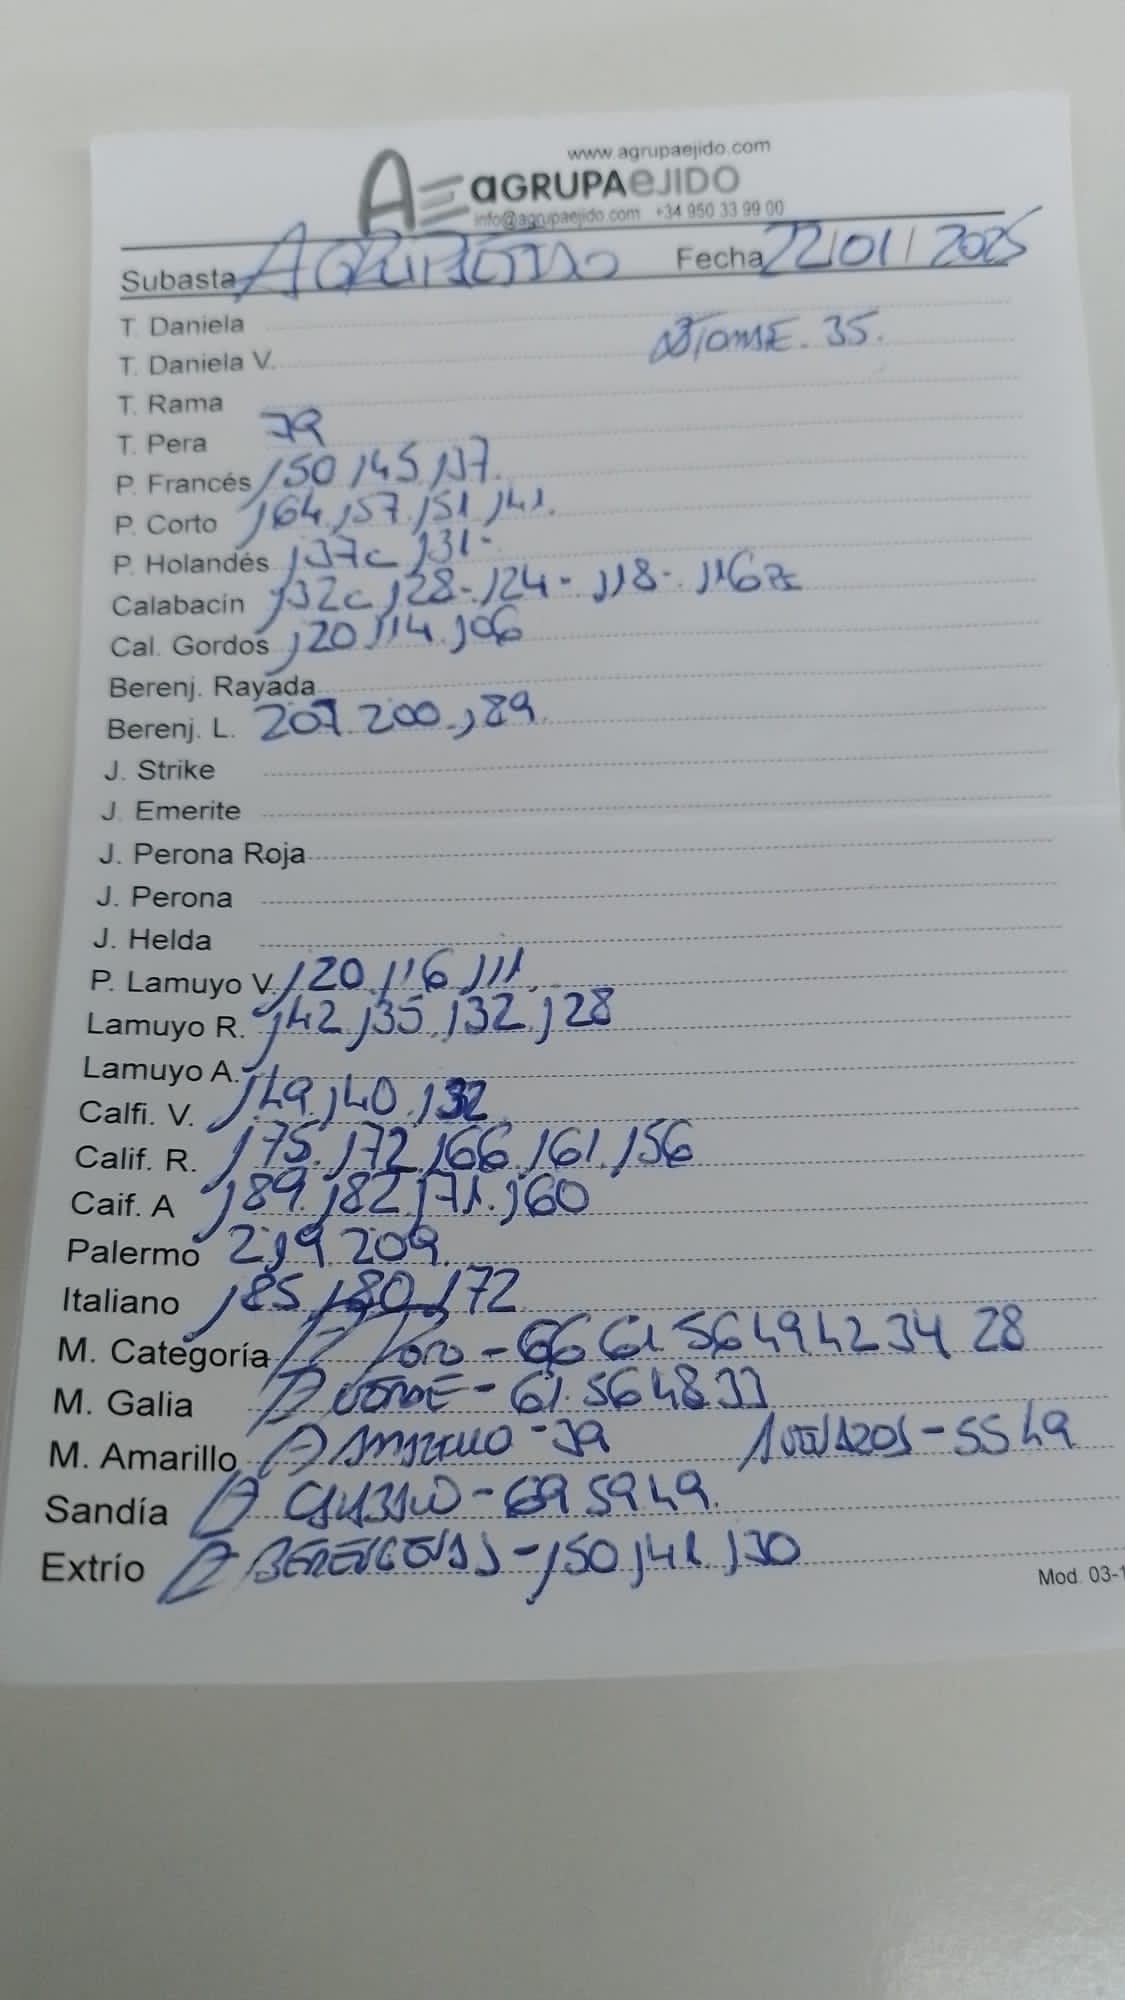 www.agrupaejido.com
AE aGRUPAeJIDO
info@agrupaejido.com +34 950 33 99 00
Subasta AGRUPAEJIDO Fecha 22/01/2025
T. Daniela
T. Daniela V. 35.
T. Rama
T. Pera 79
P. Francés 150 145 137.
P. Corto 164. 157. 151 141.
P. Holandés 137c 131-
Calabacín 132c 128- 124- 118- 116
Cal. Gordos 120 114. 106
Berenj. Rayada
Berenj. L. 207. 200. 189.
J. Strike
J. Emerite
J. Perona Roja
J. Perona
J. Helda
P. Lamuyo V. 120. 116 111.
Lamuyo R. 142 135. 132. 128
Lamuyo A.
Calfi. V. 149. 140. 132
Calif. R. 175. 172 166 161. 156
Caif. A 189. 182 171. 160
Palermo 219 209.
Italiano 185 180 172
M. Categoría P Toro - 66 61 56 49 42 34 28
M. Galia P VERDE - 61. 56 48 33
M. Amarillo P AMARILLO - 39 - 55 49
Sandía P - 69 59 49.
Extrío P BERENGENAS - 150 141. 130
Mod. 03-1